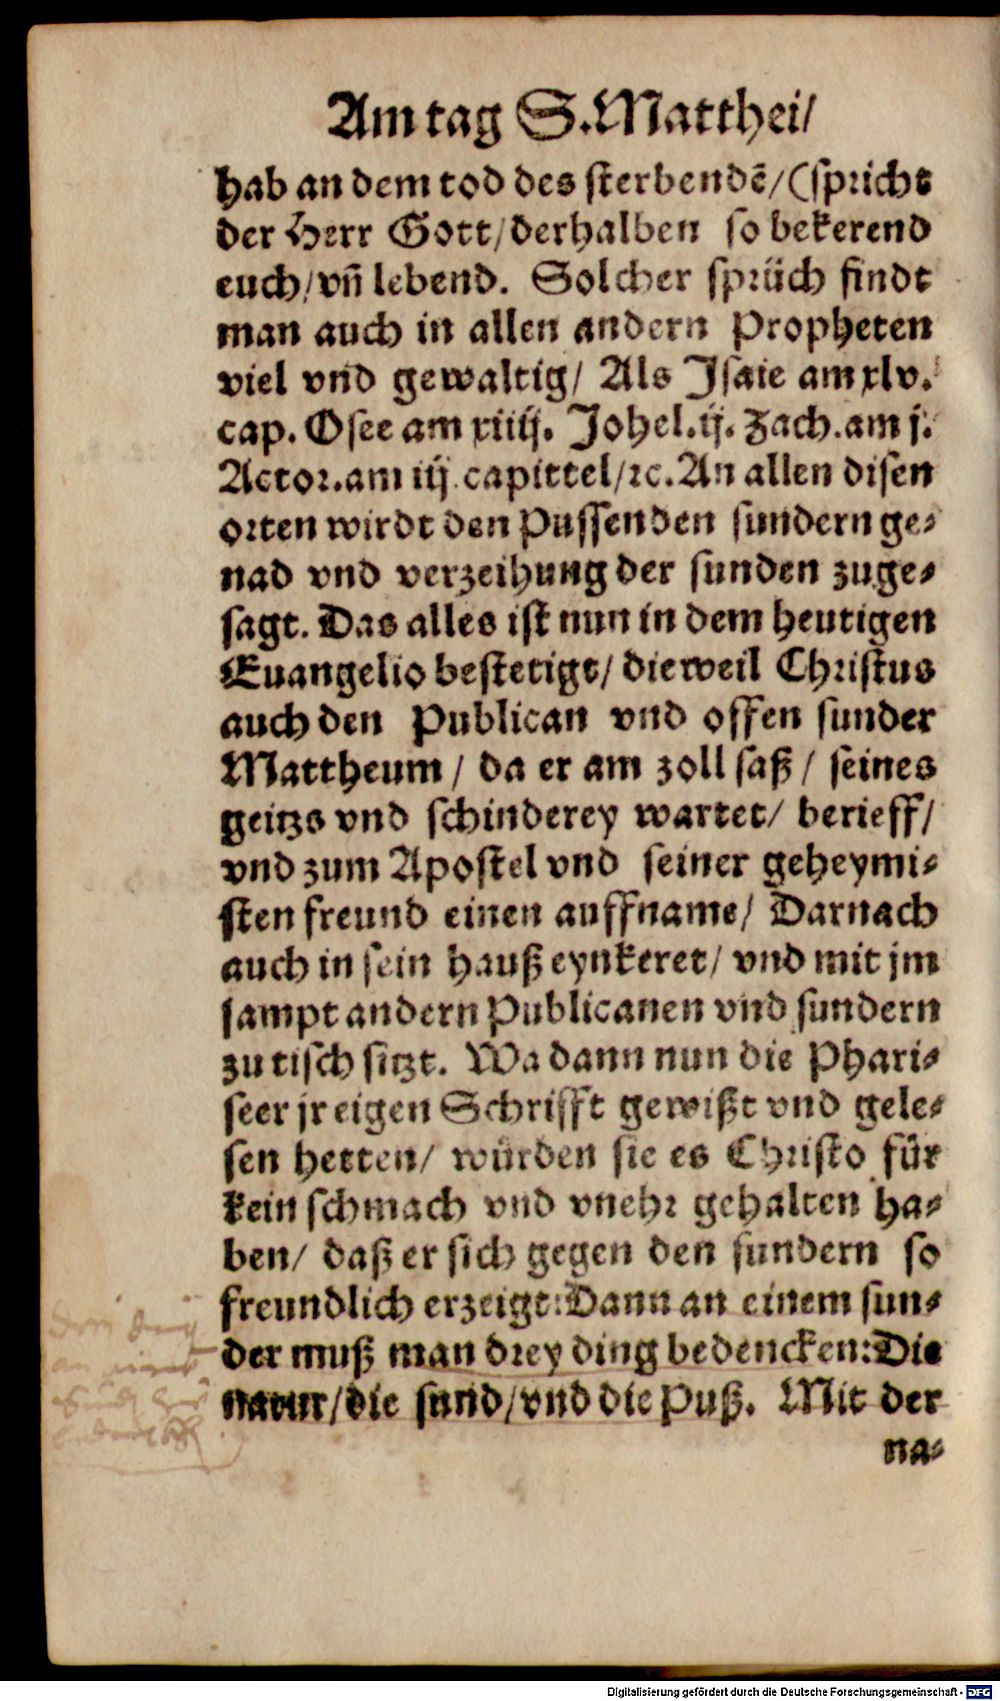 Am tag S. Matthei/
hab an dem tod des sterbendē/(spricht
der Herr Gott/derhalben so bekerend
euch/vñ lebend. Solcher sprüch findt
man auch in allen andern Propheten
viel vnd gewaltig/ Als Jsaie am xlv.
cap. Osee am xiiij. Johel.ij. Zach.am j.
Actor.am iij capittel/ꝛc. An allen disen
orten wirdt den Pussenden sundern ge-
nad vnd verzeihung der sunden zuge-
sagt. Das alles ist nun in dem heutigen
Euangelio bestetigt/ dieweil Christus
auch den Publican vnd offen sunder
Mattheum / da er am zoll saß / seines
geitzs vnd schinderey wartet/ berieff/
vnd zum Apostel vnd seiner geheymi-
sten freund einen auffname/ Darnach
auch in sein hauß eynkeret/ vnd mit jm
sampt andern Publicanen vnd sundern
zu tisch sitzt. Wa dann nun die Phari-
seer jr eigen Schrifft gewißt vnd gele-
sen hetten/ würden sie es Christo für
kein schmach vnd vnehr gehalten ha-
ben/ daß er sich gegen den sundern so
freundlich erzeigt: Dann an einem sun-
der muß man drey ding bedencken: Die
natur/die sund/vnd die Puß. Mit der
na-
Digitalisierung gefördert durch die Deutsche Forschungsgemeinschaft - DFG